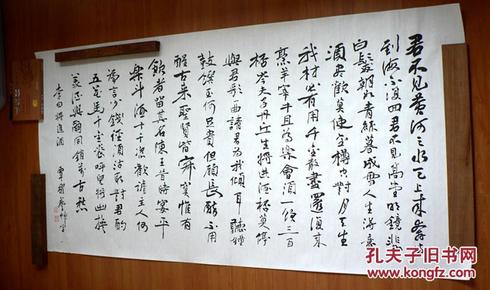 君不見黃河之水天上來奔流
到海不復回君不見高堂明鏡悲
白髮朝如青絲暮成雪人生得意
須盡歡莫使金樽空對月天生
我材必有用千金散盡還復來
烹羊宰牛且為樂會須一飲三百
杯岑夫子丹丘生將進酒杯莫停
與君歌一曲請君為我傾耳聽鐘
鼓饌玉何足貴但願長醉不用
醒古來聖賢皆寂寞惟有
飲者留其名陳王昔時宴平
樂斗酒十千恣歡謔主人何
為言少錢徑須沽取對君酌
五花馬千金裘呼兒將出換
美酒與爾同銷萬古愁
李白將進酒
孔夫子旧书网
kongfz.com